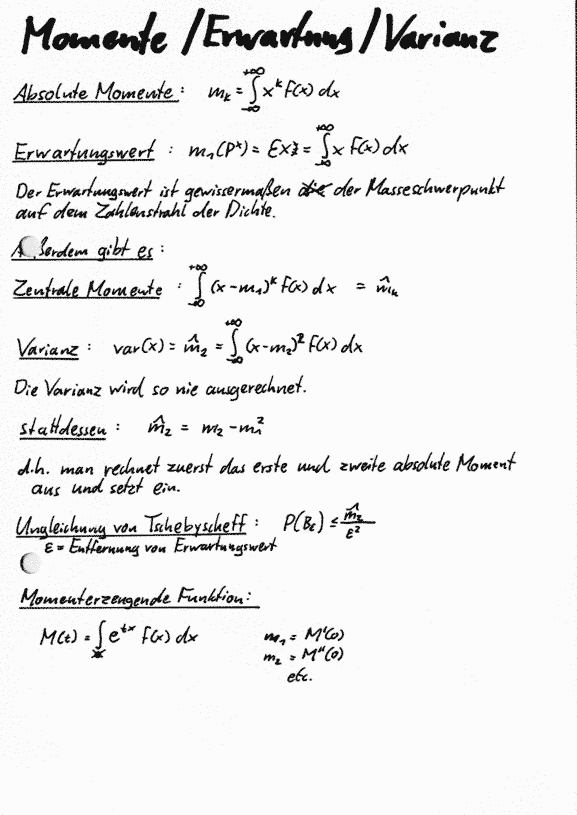 Momente / Erwartung / Varianz
Absolute Momente : m_k = ∫_{-∞}^{+∞} x^k f(x) dx
Erwartungswert : m_1(P^x) = E{x} = ∫_{-∞}^{+∞} x f(x) dx
Der Erwartungswert ist gewissermaßen der Masseschwerpunkt
auf dem Zahlenstrahl der Dichte.
Außerdem gibt es :
Zentrale Momente : ∫_{-∞}^{+∞} (x-m_1)^k f(x) dx = m̂_k
Varianz : var(x) = m̂_2 = ∫_{-∞}^{+∞} (x-m_2)^2 f(x) dx
Die Varianz wird so nie ausgerechnet.
stattdessen : m̂_2 = m_2 - m_1^2
d.h. man rechnet zuerst das erste und zweite absolute Moment
aus und setzt ein.
Ungleichung von Tschebyscheff : P(B_ε) ≤ m̂_2/ε^2
ε = Entfernung von Erwartungswert
Momenterzeugende Funktion:
M(t) = ∫ e^{tx} f(x) dx m_1 = M'(0)
m_2 = M''(0)
etc.